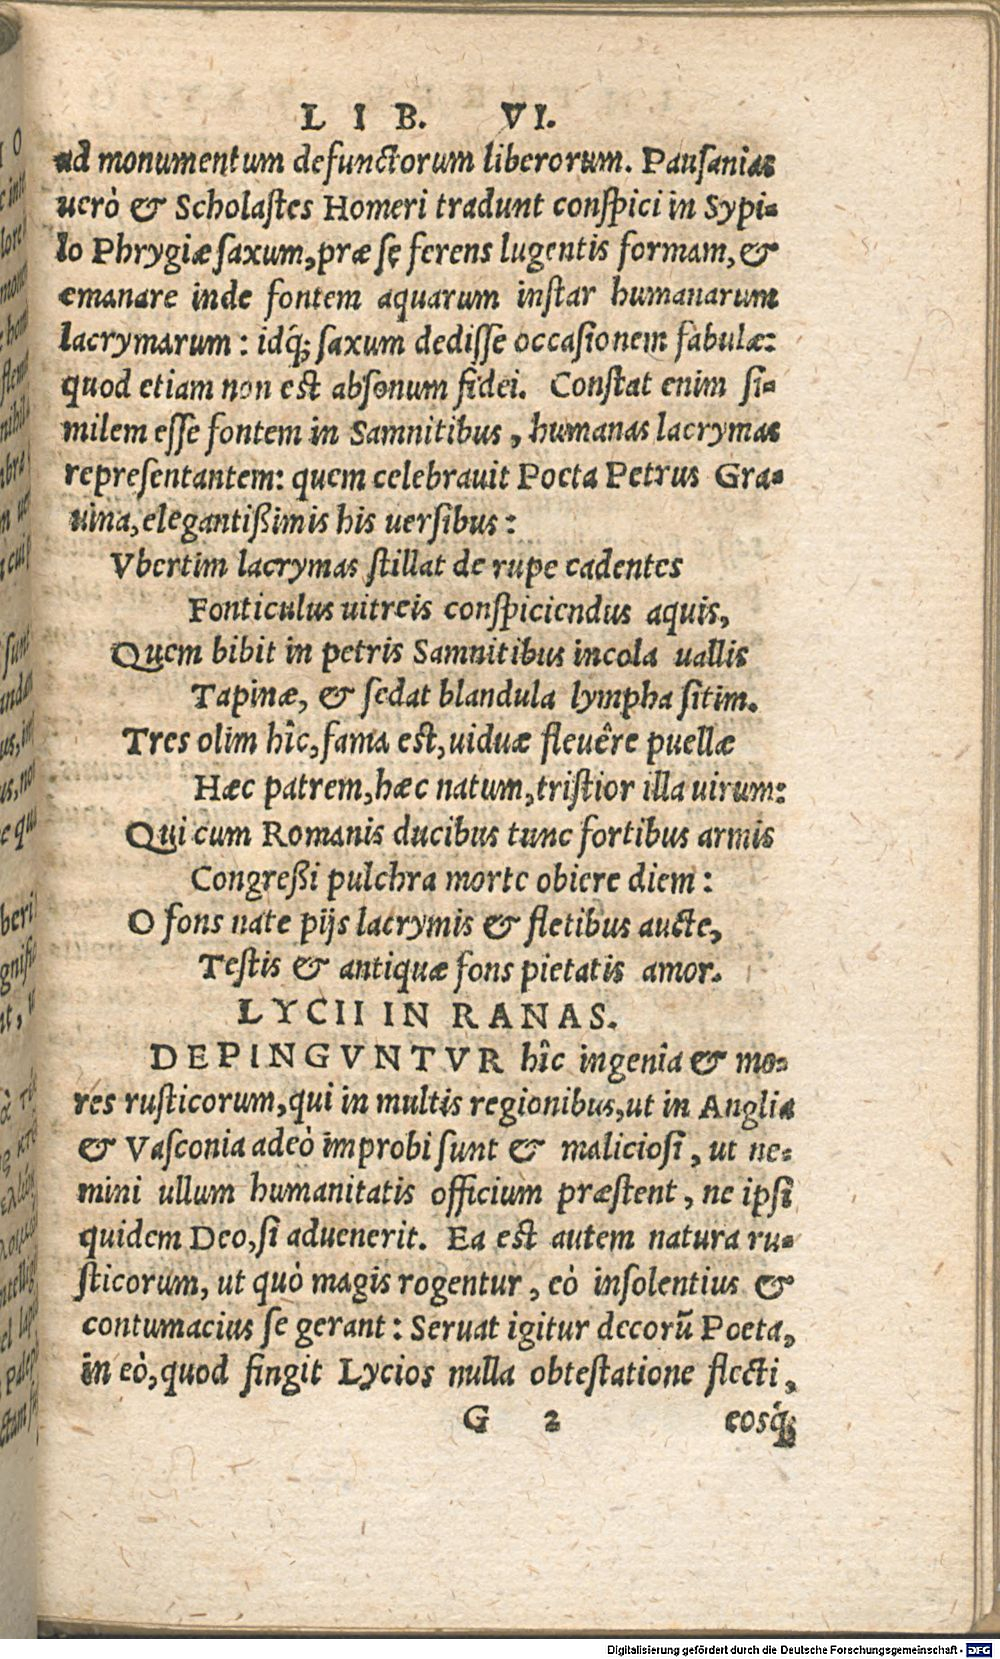 LIB. VI.
ad monumentum defunctorum liberorum. Pausanias
uerò & Scholastes Homeri tradunt conspici in Sypi-
lo Phrygiæ saxum, præ sę ferens lugentis formam, &
emanare inde fontem aquarum instar humanarum
lacrymarum: idq́; saxum dedisse occasionem fabulæ:
quod etiam non est absonum fidei. Constat enim si-
milem esse fontem in Samnitibus, humanas lacrymas
representantem: quem celebrauit Poeta Petrus Gra-
uina, elegantißimis his uersibus:
Vbertim lacrymas stillat de rupe cadentes
Fonticulus uitreis conspiciendus aquis,
Quem bibit in petris Samnitibus incola uallis
Tapinæ, & sedat blandula lympha sitim.
Tres olim hîc, fama est, uiduæ fleuêre puellæ
Hæc patrem, hæc natum, tristior illa uirum:
Qui cum Romanis ducibus tunc fortibus armis
Congreßi pulchra morte obiere diem:
O fons nate pijs lacrymis & fletibus aucte,
Testis & antiquæ fons pietatis amor.
LYCII IN RANAS.
DEPINGVNTVR hîc ingenia & mo-
res rusticorum, qui in multis regionibus, ut in Anglia
& Vasconia adeò improbi sunt & maliciosi, ut ne-
mini ullum humanitatis officium præstent, ne ipsi
quidem Deo, si aduenerit. Ea est autem natura ru-
sticorum, ut quò magis rogentur, eò insolentius &
contumacius se gerant: Seruat igitur decorũ Poeta,
in eò, quod fingit Lycios nulla obtestatione flecti,
G 2 eosq́;
Digitalisierung gefördert durch die Deutsche Forschungsgemeinschaft - DFG